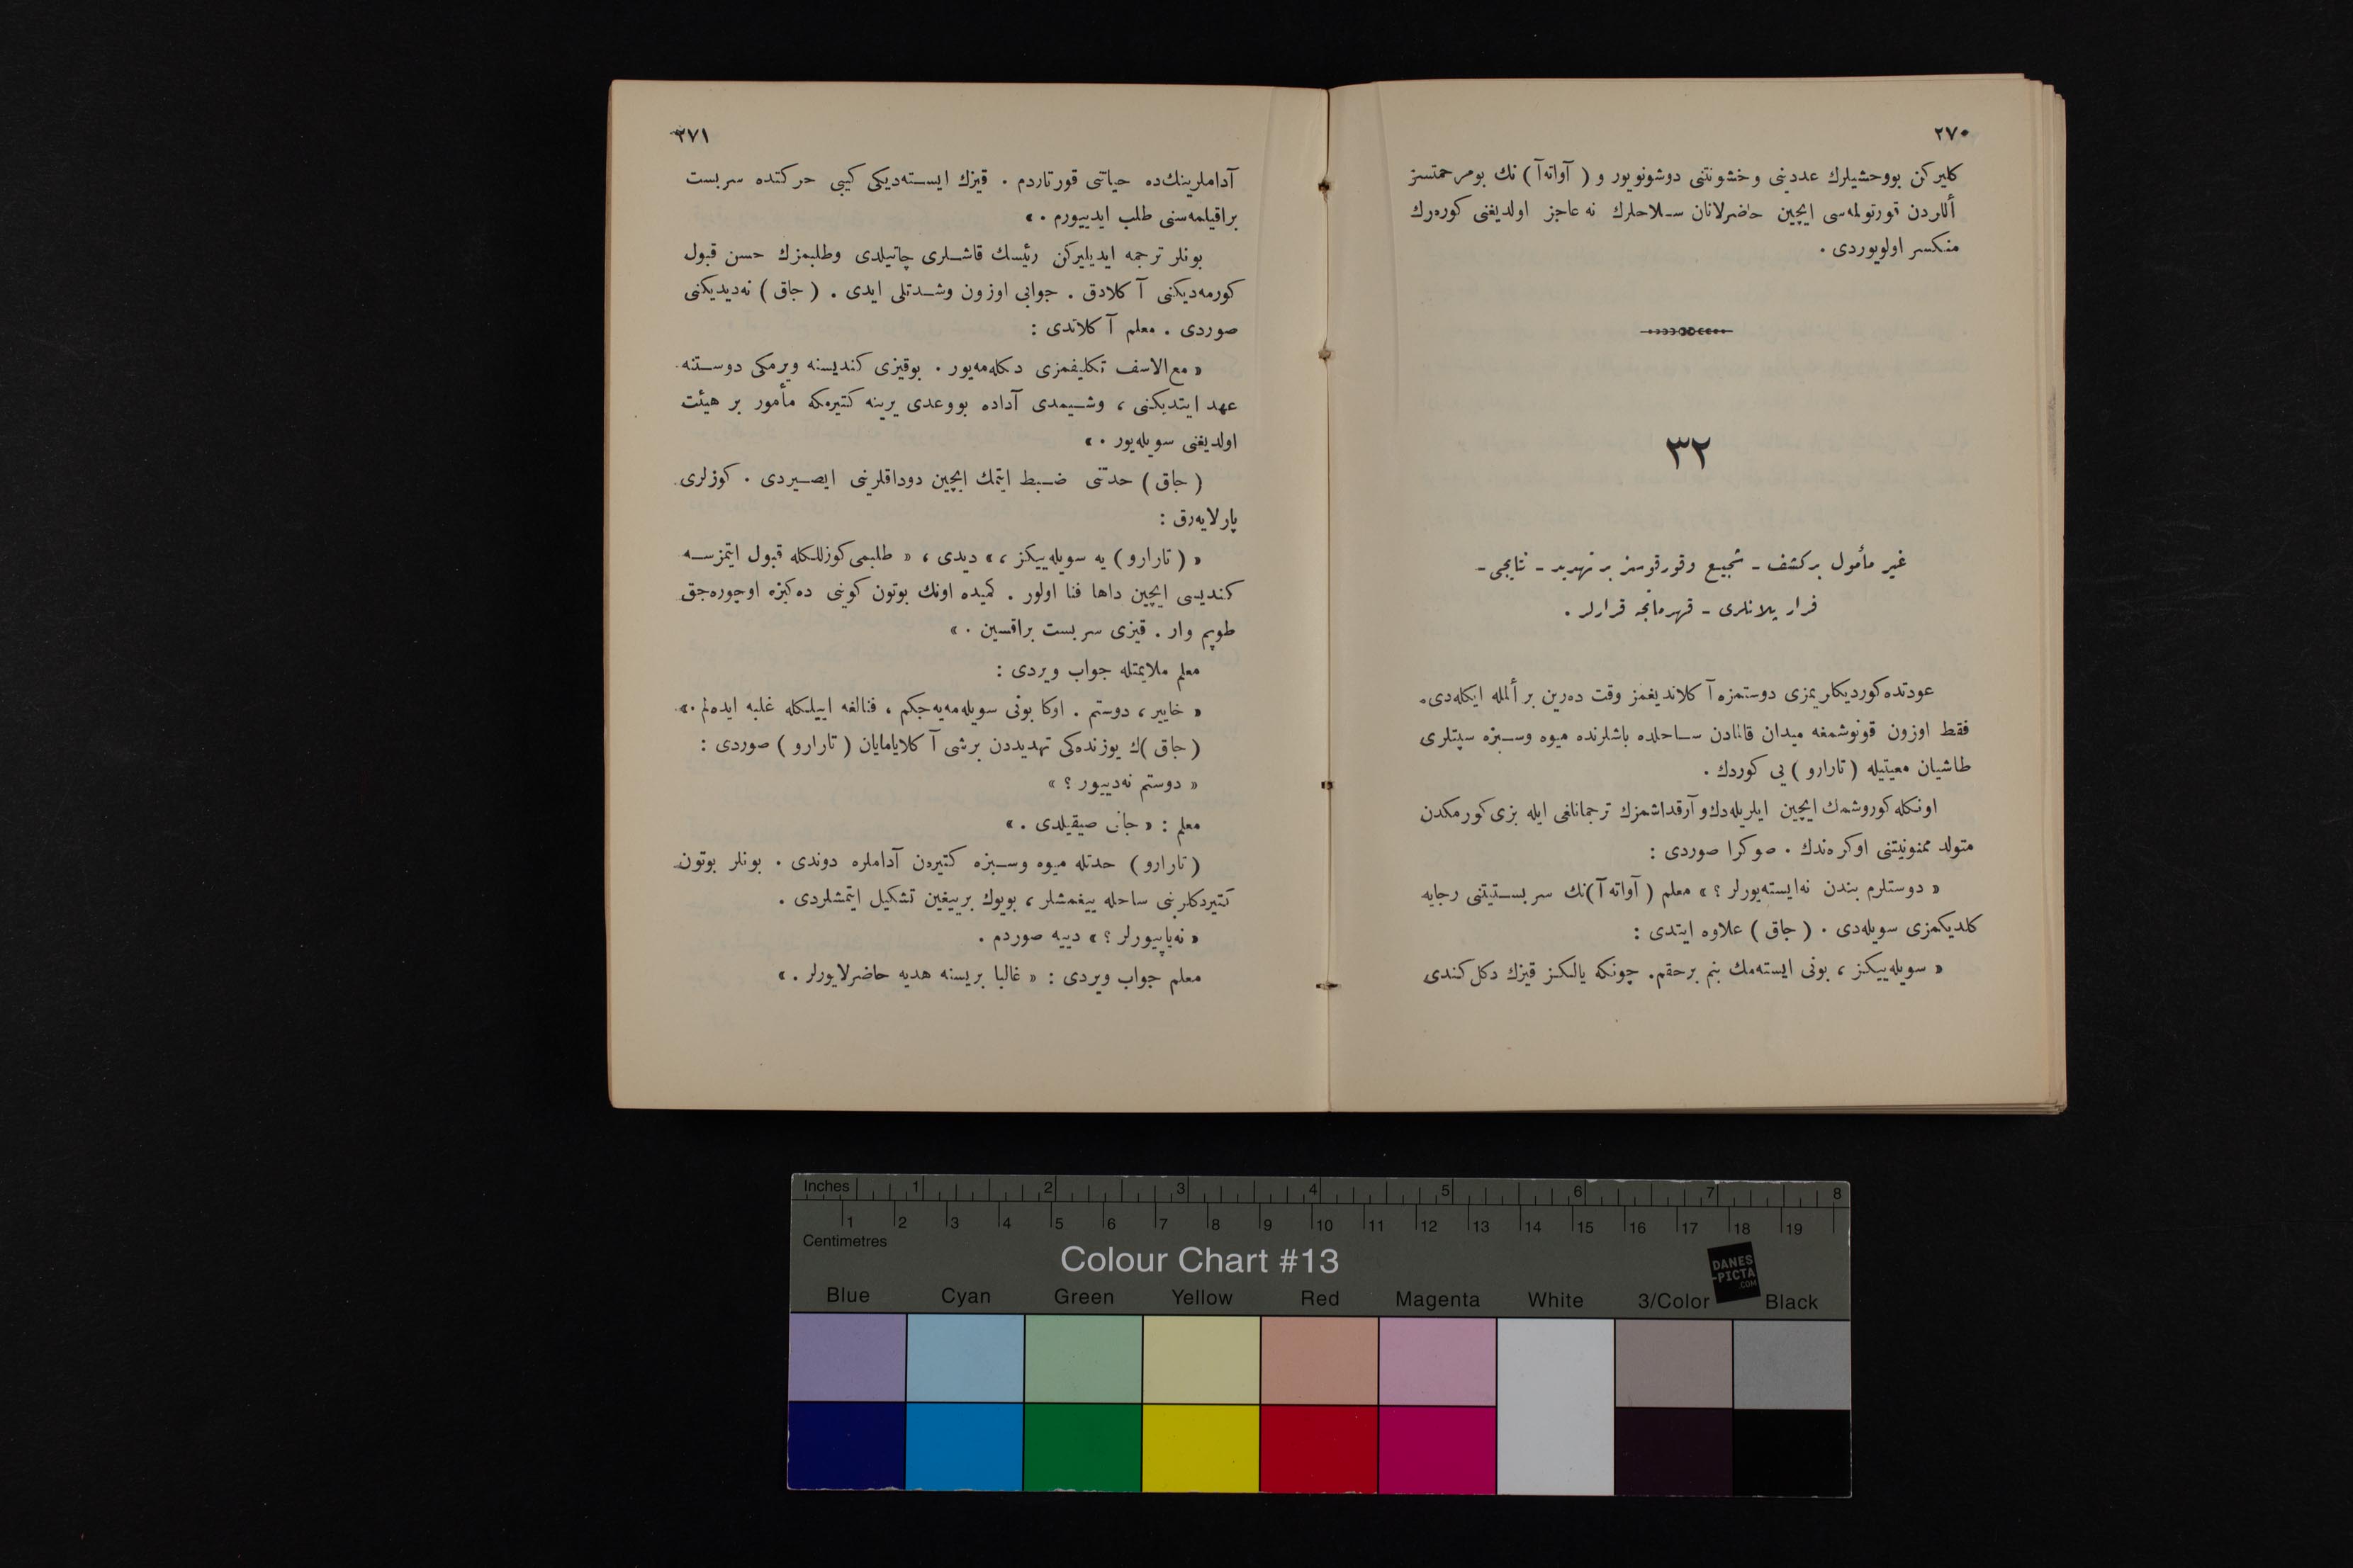 ٢٧٠
كليركن بووحشيلرك عددينى وخشونتنى دوشونويور و ( آواتەآ ) نك بومرحمتسز
أللردن قورتولمەسى ايچين حاضرلانان سلاحلرك نە عاجز اولديغنى كورەرك
منكسر اولويوردى .
٣٢
غير مأمول بركشف ـ شجيع وقورقوسز بر تهديد ـ نتايجى ـ
فرار پلانلرى ـ قهرمانجه قرارلر .
عودتده كورديكلريمزى دوستمزه آ كلاتديغمز وقت دەرين بر ألمله ايكلەدى .
فقط اوزون قونوشمغه ميدان قالمادن ساحلده باشلرنده ميوه وسبزه سپتلرى
طاشيان معيتيله ( تارارو ) يى كوردك .
اونكله كوروشمك ايچين ايلريلەدك و آرقداشمزك ترجمانلغى ايله بزى كورمكدن
متولد ممنونيتنى اوكرەندك . صوكرا صوردى :
« دوستلرم بندن نەايستەيورلر ؟ » معلم ( آواتەآ )نك سربستيتنى رجايه
كلديكمزى سويلەدى . ( جاق ) علاوه ايتدى :
« سويلەييكز ، بونى ايستەمك بنم برحقم. چونكه يالكز قيزك دكل كندى
٢٧١
آداملرينك‌ده حياتنى قورتاردم . قيزك ايستەديكى كيبى حركتده سربست
براقيلمەسنى طلب ايدييورم . »
بونلر ترجمه ايديليركن رئيسك قاشلرى چاتيلدى وطلبمزك حسن قبول
كورمەديكنى آ كلادق . جوابى اوزون وشدتلى ايدى . ( جاق ) نەديديكنى
صوردى . معلم آ كلاتدى :
« مع الاسف تكليفمزى دكلەمەيور . بوقيزى كنديسنه ويرمكى دوستنه
عهد ايتديكنى ، وشيمدى آداده بووعدى يرينه كتيرمكه مأمور بر هيئت
اولديغنى سويلەيور . »
( جاق ) حدتنى ضبط ايتمك ايچين دوداقلرينى ايصيردى . كوزلرى
پارلايەرق :
« ( تارارو ) يه سويلەييكز ، » ديدى ، « طلبمى كوزللكله قبول ايتمزسه
كنديسى ايچين داها فنا اولور . كميده اونك بوتون كوينى دەكيزه اوچورەجق
طوپم وار . قيزى سربست براقسين . »
معلم ملايمتله جواب ويردى :
« خايير ، دوستم . اوكا بونى سويلەمەيەجكم ، فنالغه اييلكله غلبه ايدەلم . »
( جاق )ك يوزنده‌كى تهديددن برشى آ كلايامايان ( تارارو ) صوردى :
« دوستم نەدييور ؟ »
معلم : « جانى صيقيلدى . »
( تارارو ) حدتله ميوه وسبزه كتيرەن آداملره دوندى . بونلر بوتون
كتيردكلرينى ساحله ييغمشلر ، بويوك برييغين تشكيل ايتمشلردى .
« نەياپيورلر ؟ » دييه صوردم .
معلم جواب ويردى : « غالبا بريسنه هديه حاضرلايورلر . »
Inches 1 2 3 4 5 6 7 8
1 2 3 4 5 6 7 8 9 10 11 12 13 14 15 16 17 18 19
Centimetres
Colour Chart #13
DANES
-PICTA
.COM
Blue Cyan Green Yellow Red Magenta White 3/Color Black